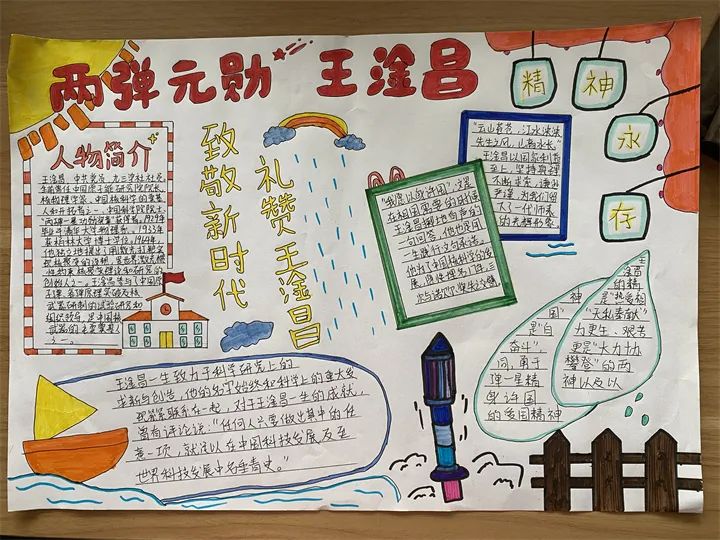 两弹元勋 王淦昌
人物简介
王淦昌,中共党员,九三学社社员,
生前曾任中国原子能研究院院长,
核物理学家、中国核科学的奠基
人和开拓者之一,中国科学院院士,
"两弹一星功勋奖章"获得者。1929年
毕业于清华大学物理系。1933年
获柏林大学博士学位。1964年,
创始人之一。
武器研制的试验研究和
组织领导,是中国核
武器的主要奠基人
之一。
致敬新时代
礼赞王淦昌
"我愿以身许国",这是
在祖国需要的时候
王淦昌掷地有声的
一句回答,他也是用
一生践行这句诺言。
"云山苍苍,江水泱泱,
先生之风,山高水长。"
王淦昌以国家利益
至上,坚持真理
不断求索
精
神
永
存
神
国"
是"自
奋斗"
问,勇于
弹一星精
身许国
的爱国精神
王
淦昌
的精
是"热爱祖
"无私奉献"
力更生、艰苦
更是"大力协
攀登"的两
神以及以
王淦昌一生致力于科学研究上的
求新与创造,他的名字始终和科学上的重大发
现紧紧联系在一起,对于王淦昌一生的成就,
曾有评论说:"任何人只要做出其中的任
意一项,就足以在中国科技发展乃至
世界科技发展中名垂青史。"